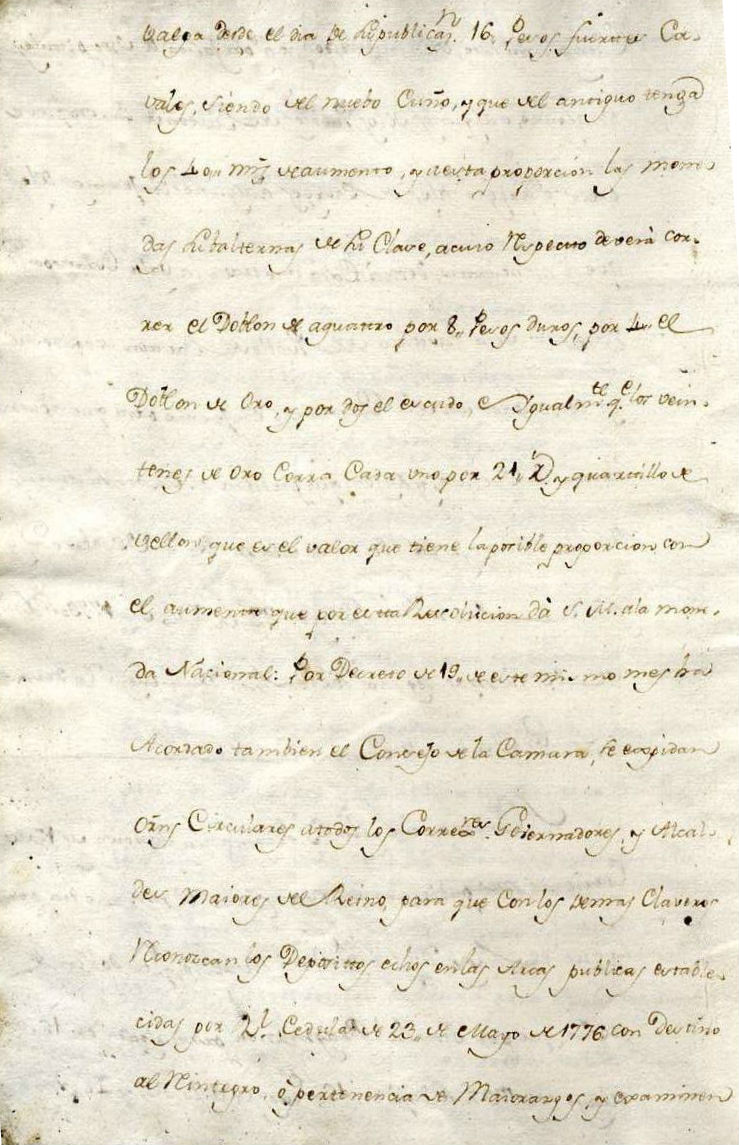 valga desde el dia de su publican. 16. Pesos fuertes Ca-
vales, siendo del nuebo Cuño, y que del antiguo tenga
los 40 mrs de aumento, y a esta proporcion las mone-
das subalternas de su Clase, a cuio respecto deverà cor-
rer el Doblon de aquatro por 8,, Pesos duros, por 4,, el
Doblon de Oro, y por dos el escudo, e Ygualmte. qe. los vein-
tenes de Oro Corra Cada uno por 21,, Rs. y quartillo de
vellon, que es el valor que tiene la posible proporcion con
el aumento que por esta Resolucion dà S. M. a la mone-
da Nacional: Por Decreto de 19,, de este mismo mes ha
Acordado tambien el Consejo de la Camara, se expidan
Orns Circulares a todos los Correxres. Governadores, y Alcal-
des Maiores del Reino, para que Con los demas Claveros
Reconozcan los Depositos echos en las Arcas publicas estable-
cidas por Rl. Cedula de 23,, de Mayo de 1776 con Destino
al Reintegro, ò pertenencia de Maiorazgos, y examinen